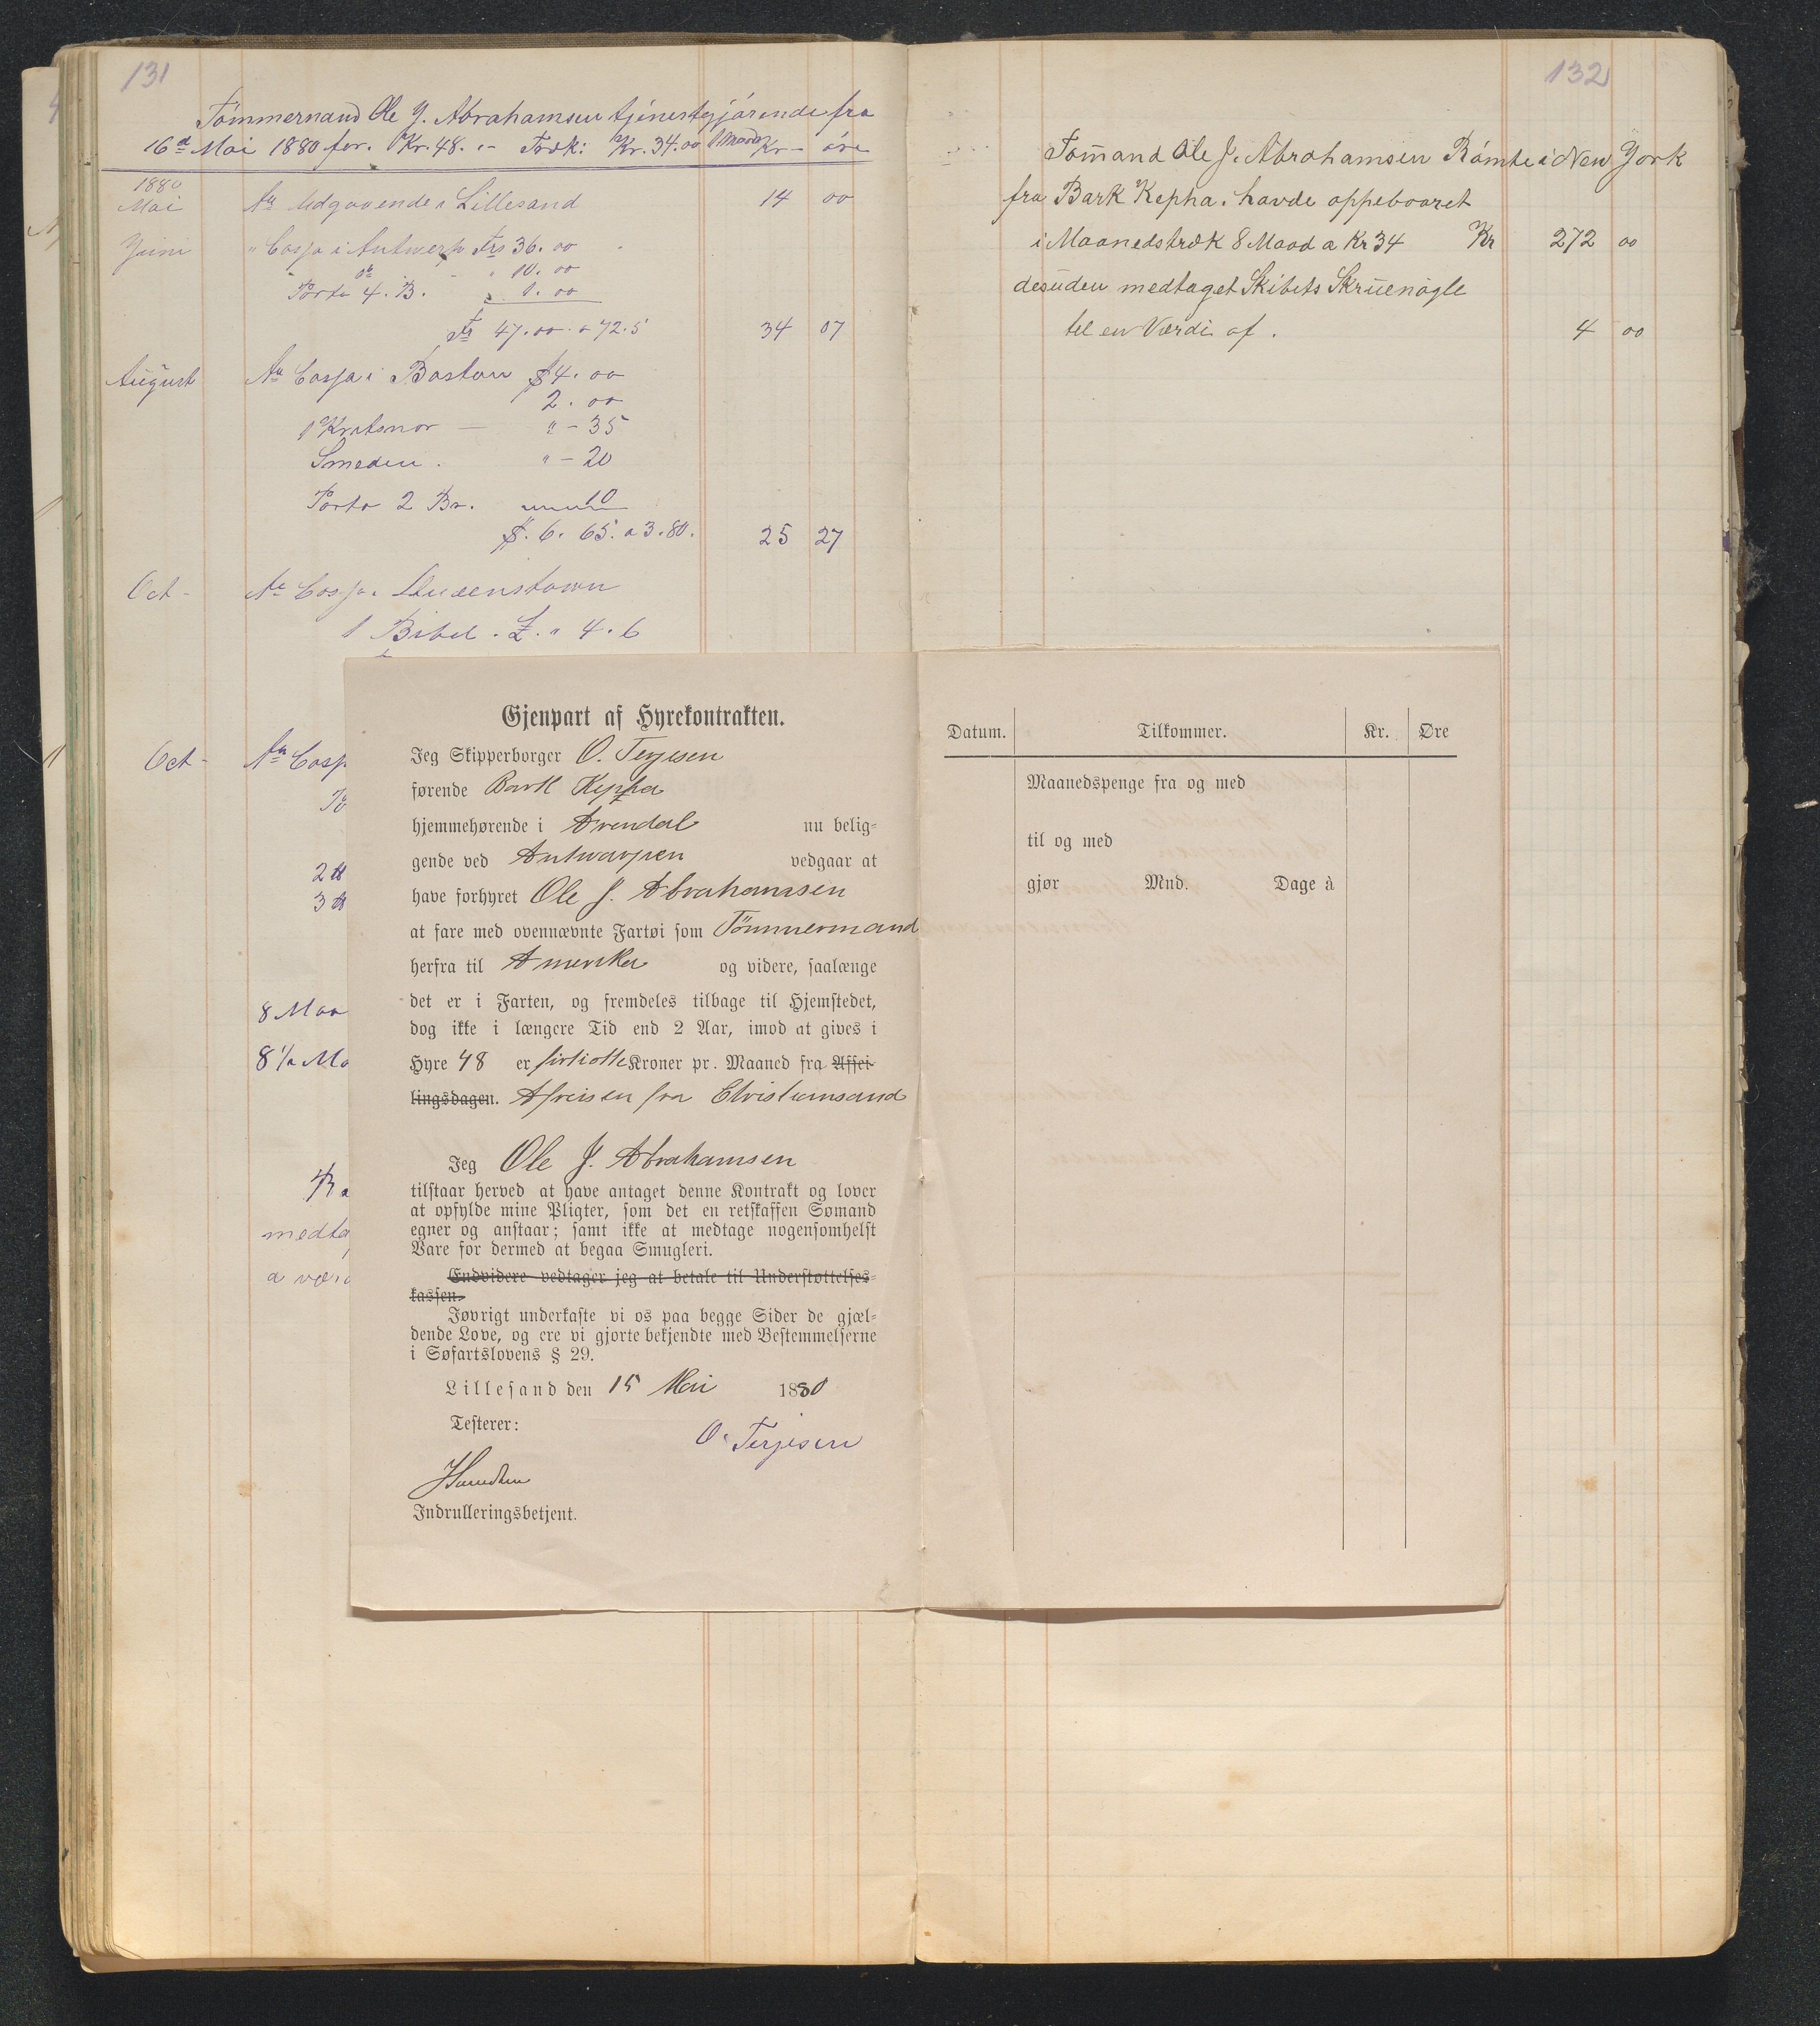 131
Tömmermand Ole J. Abrahamsen tjenestegjörende fra
16de Mai 1880 for. Kr. 48. „- Træk: Kr. 34.00 1 Maand Kr - öre
1880
Mai An Udgaaende i Lillesand 14 00
Juni " Cassa i Antwerp Frs 36.00
" do - " 10.00
Porto 4. B. " 1.00
Fr 47.00 a 72.5 34 07
August An Cassa i Boston $4.00
2.00
1 " - 35
Smeden. " - 20
Porto 2 Br. 10
$. 6. 65. a 3.80. 25 27
Oct - An Cassa i Queenstown
1 Bibel. £. " 4. 6
Oct - An Cass
2 tt
3 tt
8 Maa
8 1/2 Ma
medta
a vær
132
Tömand Ole J. Abrahamsen Römte i New York
fra Bark Kepha. havde oppebaaret
i Maanedstræk 8 Maad a Kr 34 Kr 272 00
desuden medtaget Skibets Skruenögle
til en Værdi af. 4 00
Gjenpart af Hyrekontrakten.
Jeg Skipperborger O. Terjesen
førende Bark Kepha
hjemmehørende i Arendal nu belig-
gende ved Antwarpen vedgaar at
have forhyret Ole J. Abrahamsen
at fare med ovennævnte Fartøi som Tömmermand
herfra til Amerika og videre, saalænge
det er i Farten, og fremdeles tilbage til Hjemstedet,
dog ikke i længere Tid end 2 Aar, imod at gives i
Hyre 48 er firtiotte Kroner pr. Maaned fra Afsei-
lingsdagen. Afreisen fra Christiansand
Jeg Ole J. Abrahamsen
tilstaar herved at have antaget denne Kontrakt og lover
at opfylde mine Pligter, som det en retskaffen Sømand
egner og anstaar; samt ikke at medtage nogensomhelst
Vare for dermed at begaa Smugleri.
Endvidere vedtager jeg at betale til Understøttelses-
kassen.
Iøvrigt underkaste vi os paa begge Sider de gjæl-
dende Love, og ere vi gjorte bekjendte med Bestemmelserne
i Søfartslovens § 29.
Lillesand den 15 Mai 1880
Testerer:
O. Terjesen
Indrulleringsbetjent.
Datum. Tilkommer. Kr. Øre
Maanedspenge fra og med
til og med
gjør Mnd. Dage à